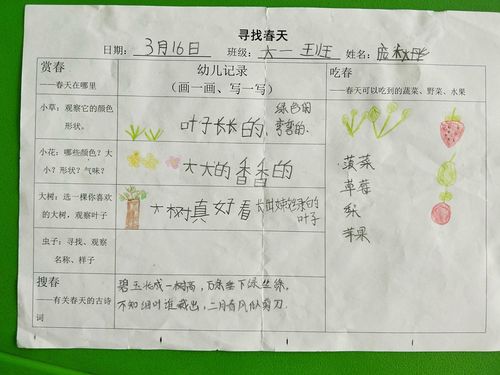 寻找春天
日期: 3月16日 班级: 大一班 姓名:
赏春
——春天在哪里
幼儿记录
(画一画、写一写)
吃春
——春天可以吃到的蔬菜、野菜、水果
小草: 观察它的颜色
形状。
叶子长长的,
绿色的
弯弯的.
小花: 哪些颜色? 大
小? 形状? 气味?
大大的香香的
大树: 选一棵你喜欢
的大树, 观察叶子
大树真好看
绿的
叶子
虫子: 寻找、观察
名称、样子
菠菜
草莓
梨
苹果
搜春
——有关春天的古诗
词
碧玉长成一树高, 万条垂下绿丝绦.
不知细叶谁裁出, 二月春风似剪刀.